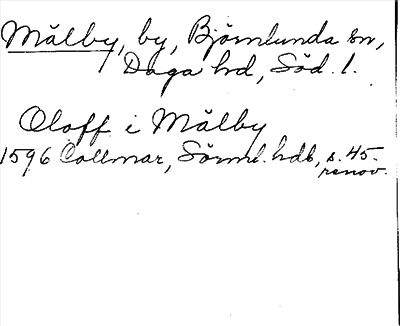 Målby, by, Björnlunda sn,
Daga hd, Söd. l.
Oloff i Målby
1596 Collmar, Sörml. hdb, s. 45.
renov.